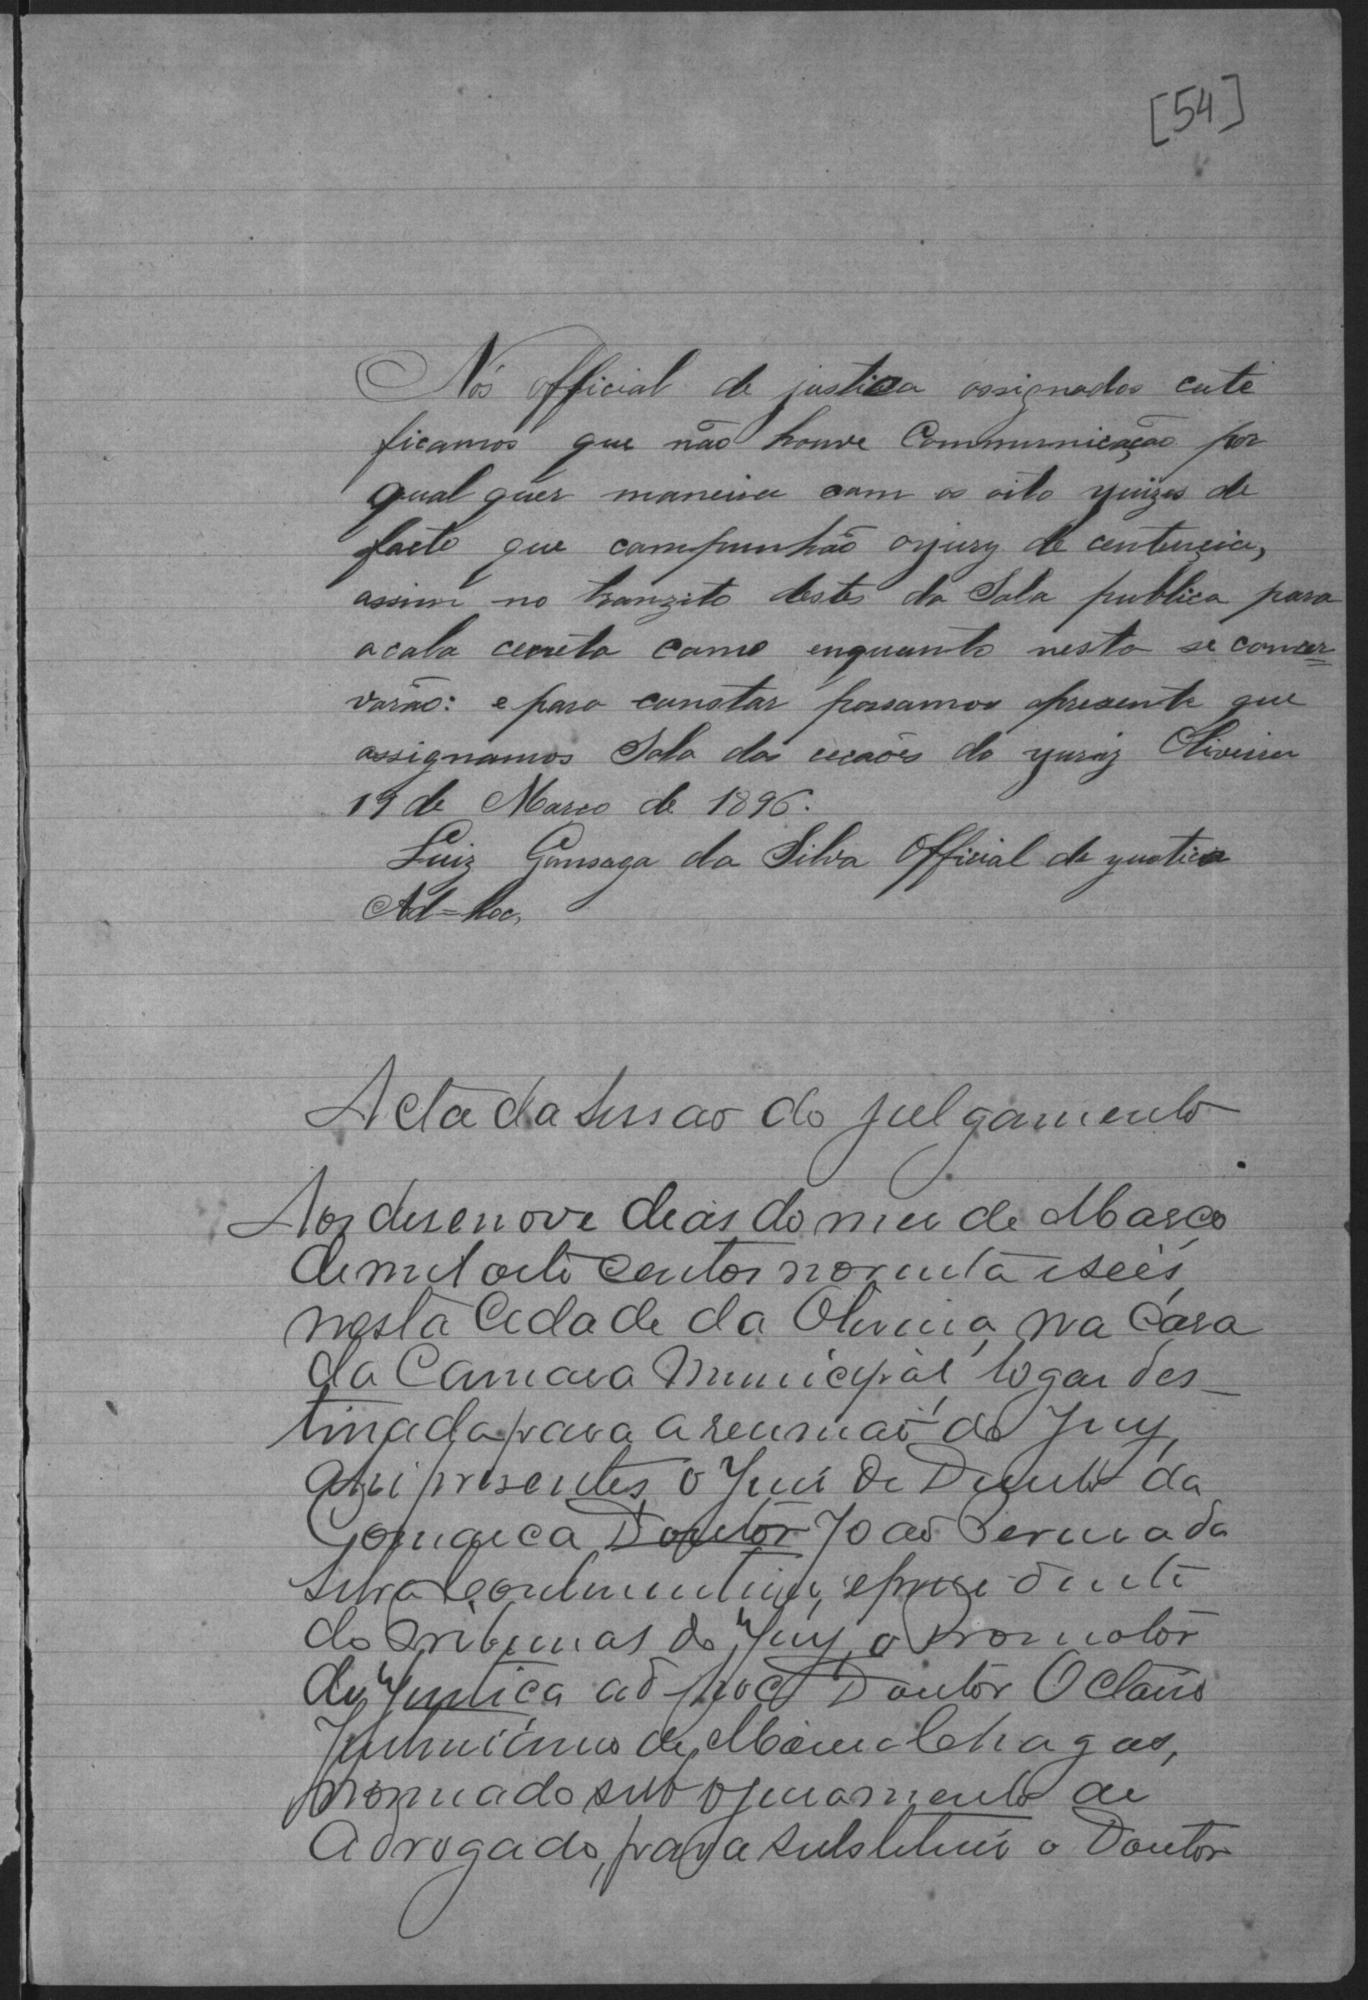 [54]
Nós official de justiça assignados cirte
ficamos que não houve Communicação por
qual quer maneira com os oito yuizes de
facto que campunhão ojury de centençia,
assim no tranzito destes da Sala publica para
acala cecréta como enquanto nesta se concer=
varão: e para constar passamos apresente que
assignamos Sala das ceçaões do yuriz Oliveira
19 de Março de 1896.
Luiz Gonsaga da Silva Official de yustiça
Ad=hoc,
Acta da Sessao do julgamento
Aos desenove dias do mez de Março
de mil oito centos noventa e seis,
nesta Cidade da Oliveira, na Casa
da Camara Municipal, logar des_
tinada para a reuniaõ do Jury,
ahi presentes, o Juis de Direito da
Comarca Doutor Joaõ
Silva e presidente
do Tribunal do Jury, o Promotor
da Justiça ad-hoc Doutor Octavio
de Chagas,
nomiado sub o juramento de
Advogado, para substituir o Doutor